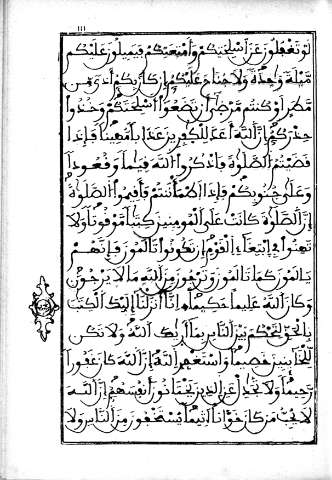 111
لو تغفلون عن أسلحتكم وأمتعتكم فيميلون عليكم
ميلة وحدة ولا جناح عليكم إن كان بكم أذى من
مطر أو كنتم مرضى أن تضعوا أسلحتكم وخذوا
حذركم إن الله أعد للكفرين عذابا مهينا فإذا
قضيتم الصلوة فاذكروا الله قيما وقعودا
وعلى جنوبكم فإذا اطمأننتم فأقيموا الصلوة
إن الصلوة كانت على المومنين كتبا موقوتا ولا
تهنوا في ابتغاء القوم إن تكونوا تالمون فإنهم
يالمون كما تالمون وترجون من الله ما لا يرجون
وكان الله عليما حكيما إنا أنزلنا إليك الكتب
بالحق لتحكم بين الناس بما أريك الله ولا تكن
للخائنين خصيما واستغفر الله إن الله كان غفورا
رحيما ولا تجدل عن الذين يختانون أنفسهم إن الله
لا يحب من كان خوانا أثيما يستخفون من الناس ولا